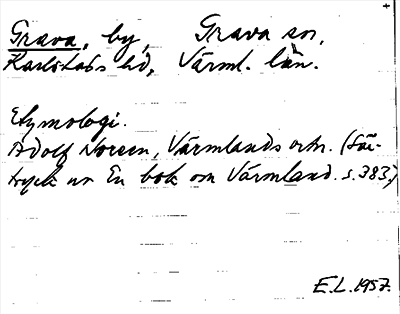 Grava, by, Grava sn,
Karlstads hd, Värml. län.
Etymologi.
Adolf Noreen, Värmlands ortn. (Sär-
tryck ur En bok om Värmland. s. 383.)
E.L. 1957.